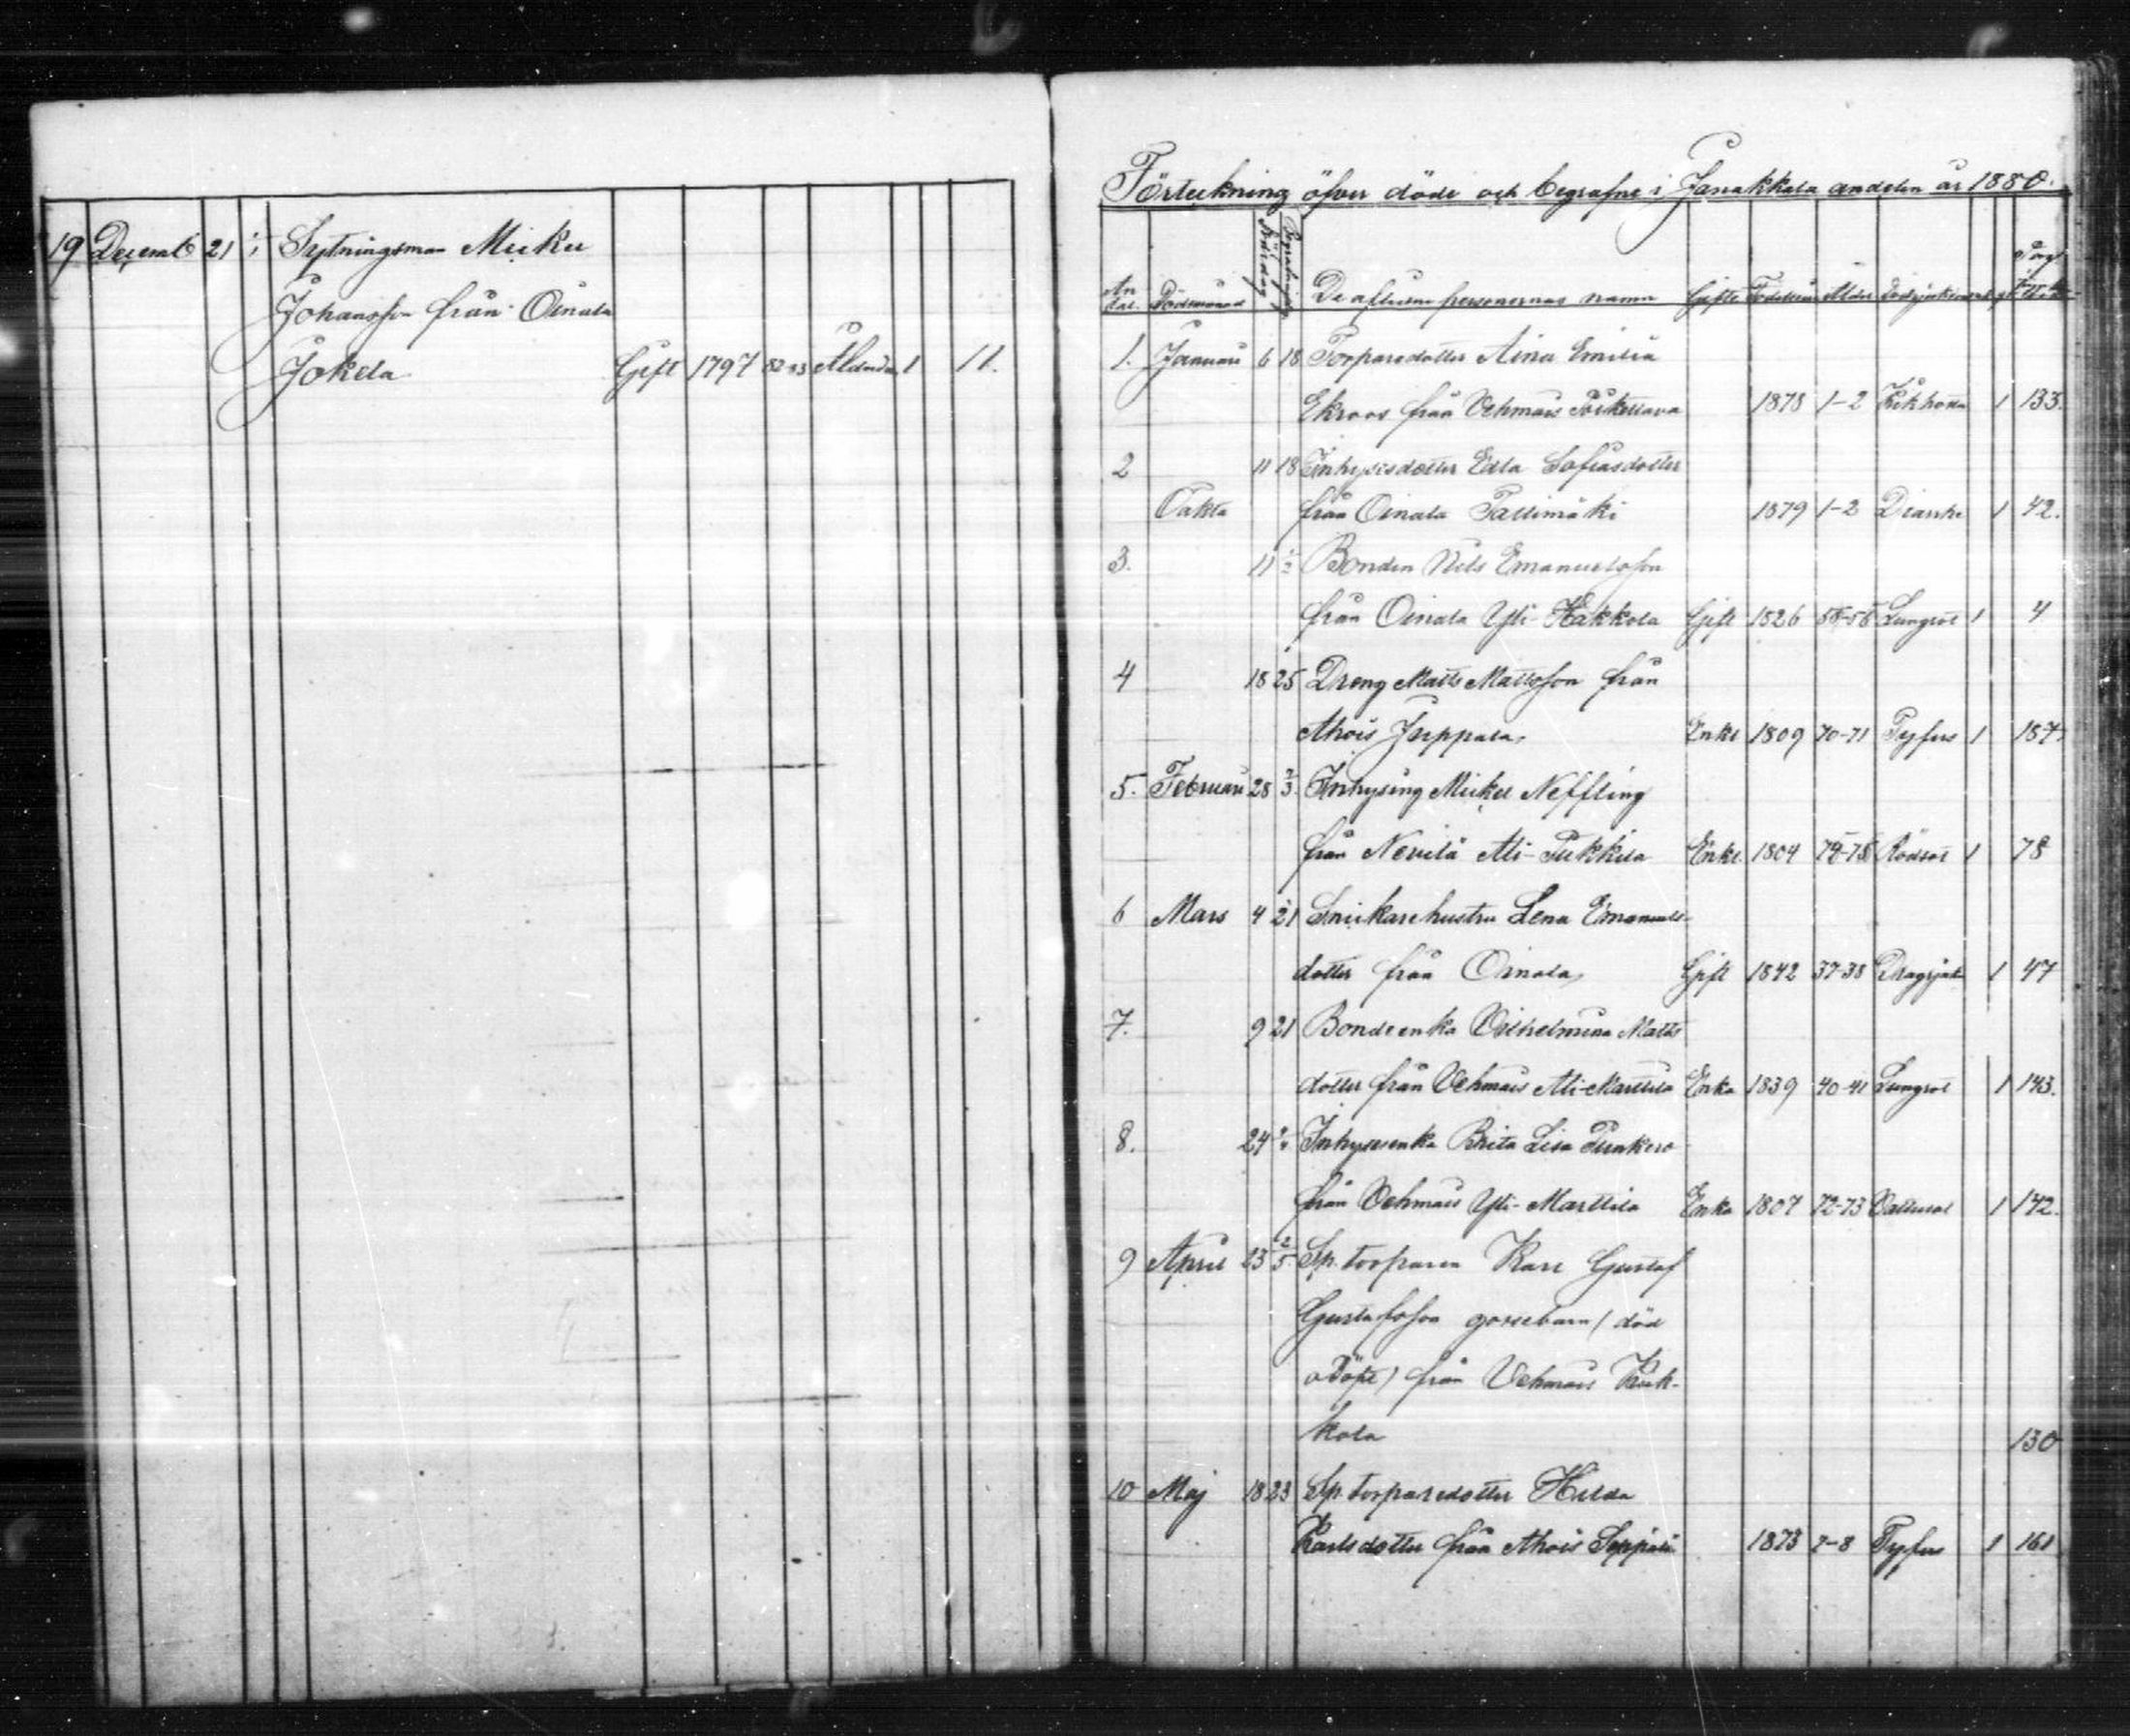 19 Decemb 21 1/1 Sytningsman Mickel
Johansson från Oinala
Jokela Gift 1797 82-83 Ålderdom 1 11.
Förteckning öfver döde och begrafne i Janakkala andelen år 1880.
An tal. Dödsmånad Dödsdag Begrafningsdag De aflidne personernas namn Gifte Födelseår Ålder Dödsjukdom Pag.
1. Januari 6 18 Torparedotter Aina Emilia
Ekroos från Vehmais 1878 1-2 Kikhosta 1 133.
2 11 18 Inhysesdotter Edla Sofiasdotter
från Oinala Tallimäki 1879 1-2 Diarrhe 1 42.
3. 11 1/2 Bonden Nils Emanuelsson
från Oinala Yli-Hakkola Gift 1826 Lungsot 1 4
4 18 25 Dreng Matts Mattsson från
Ahois Juppala, Enkl 1809 70-71 Tyfus 1 187.
5. Februari 28 7/3 Inhysing Mickel Neffling
från Nevilä Ali-Pukkila Enkl. 1804 Rödsot 1 78
6 Mars 4 21 Snickarehustru Lena Emanuels-
dotter från Oinala, Gift 1842 37-38 Dragsjuk 1 47
7. 9 21 Bondeenka Vilhelmina Matts
dotter från Vehmais Ali-Marttila Enka 1839 40-41 Lungsot 1 143.
8. 24 Inhysesenka Brita Lisa
från Vehmais Yli-Marttila Enka 1807 72-73 Vattusot 1 142.
9 April 23 2/5 Sp. torparen Karl Gustaf
Gustafsson gossebarn (död
odöpt) från Vehmais
kola 130
10 Maj 18 23 Sp. torparedotter Hilda
Karlsdotter från Ahois Seppälä 1873 7-8 Tyfus 1 161